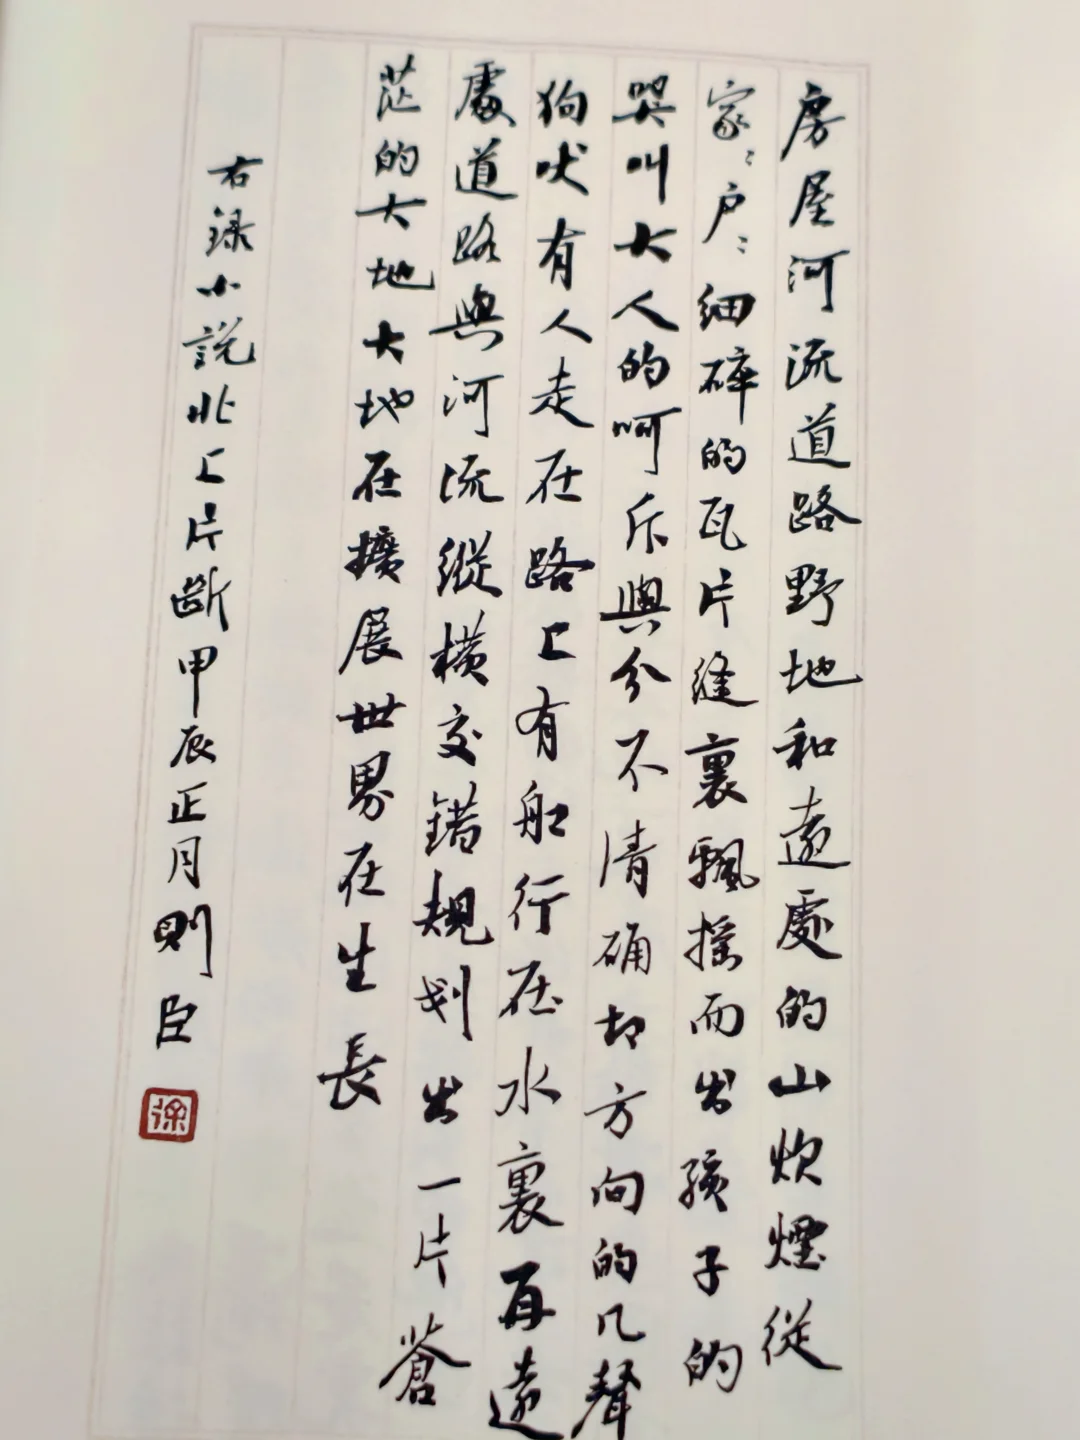 房屋河流道路野地和遠處的山炊煙從
家〻户〻細碎的瓦片縫裏飄摇而出孩子的
哭叫大人的呵斥與分不清确切方向的几聲
狗吠有人走在路上有船行在水裏再遠
處道路與河流縱横交錯規划出一片蒼
茫的大地大地在擴展世界在生長
右録小説北上片斷甲辰正月則臣
徐